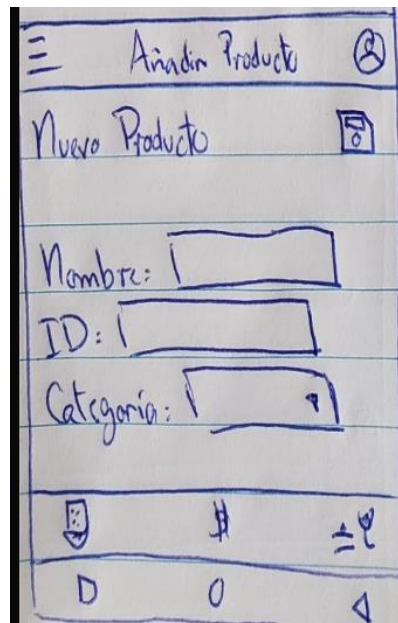 Añadir Producto
Nuevo Producto
Nombre:
ID:
Categoría:
$